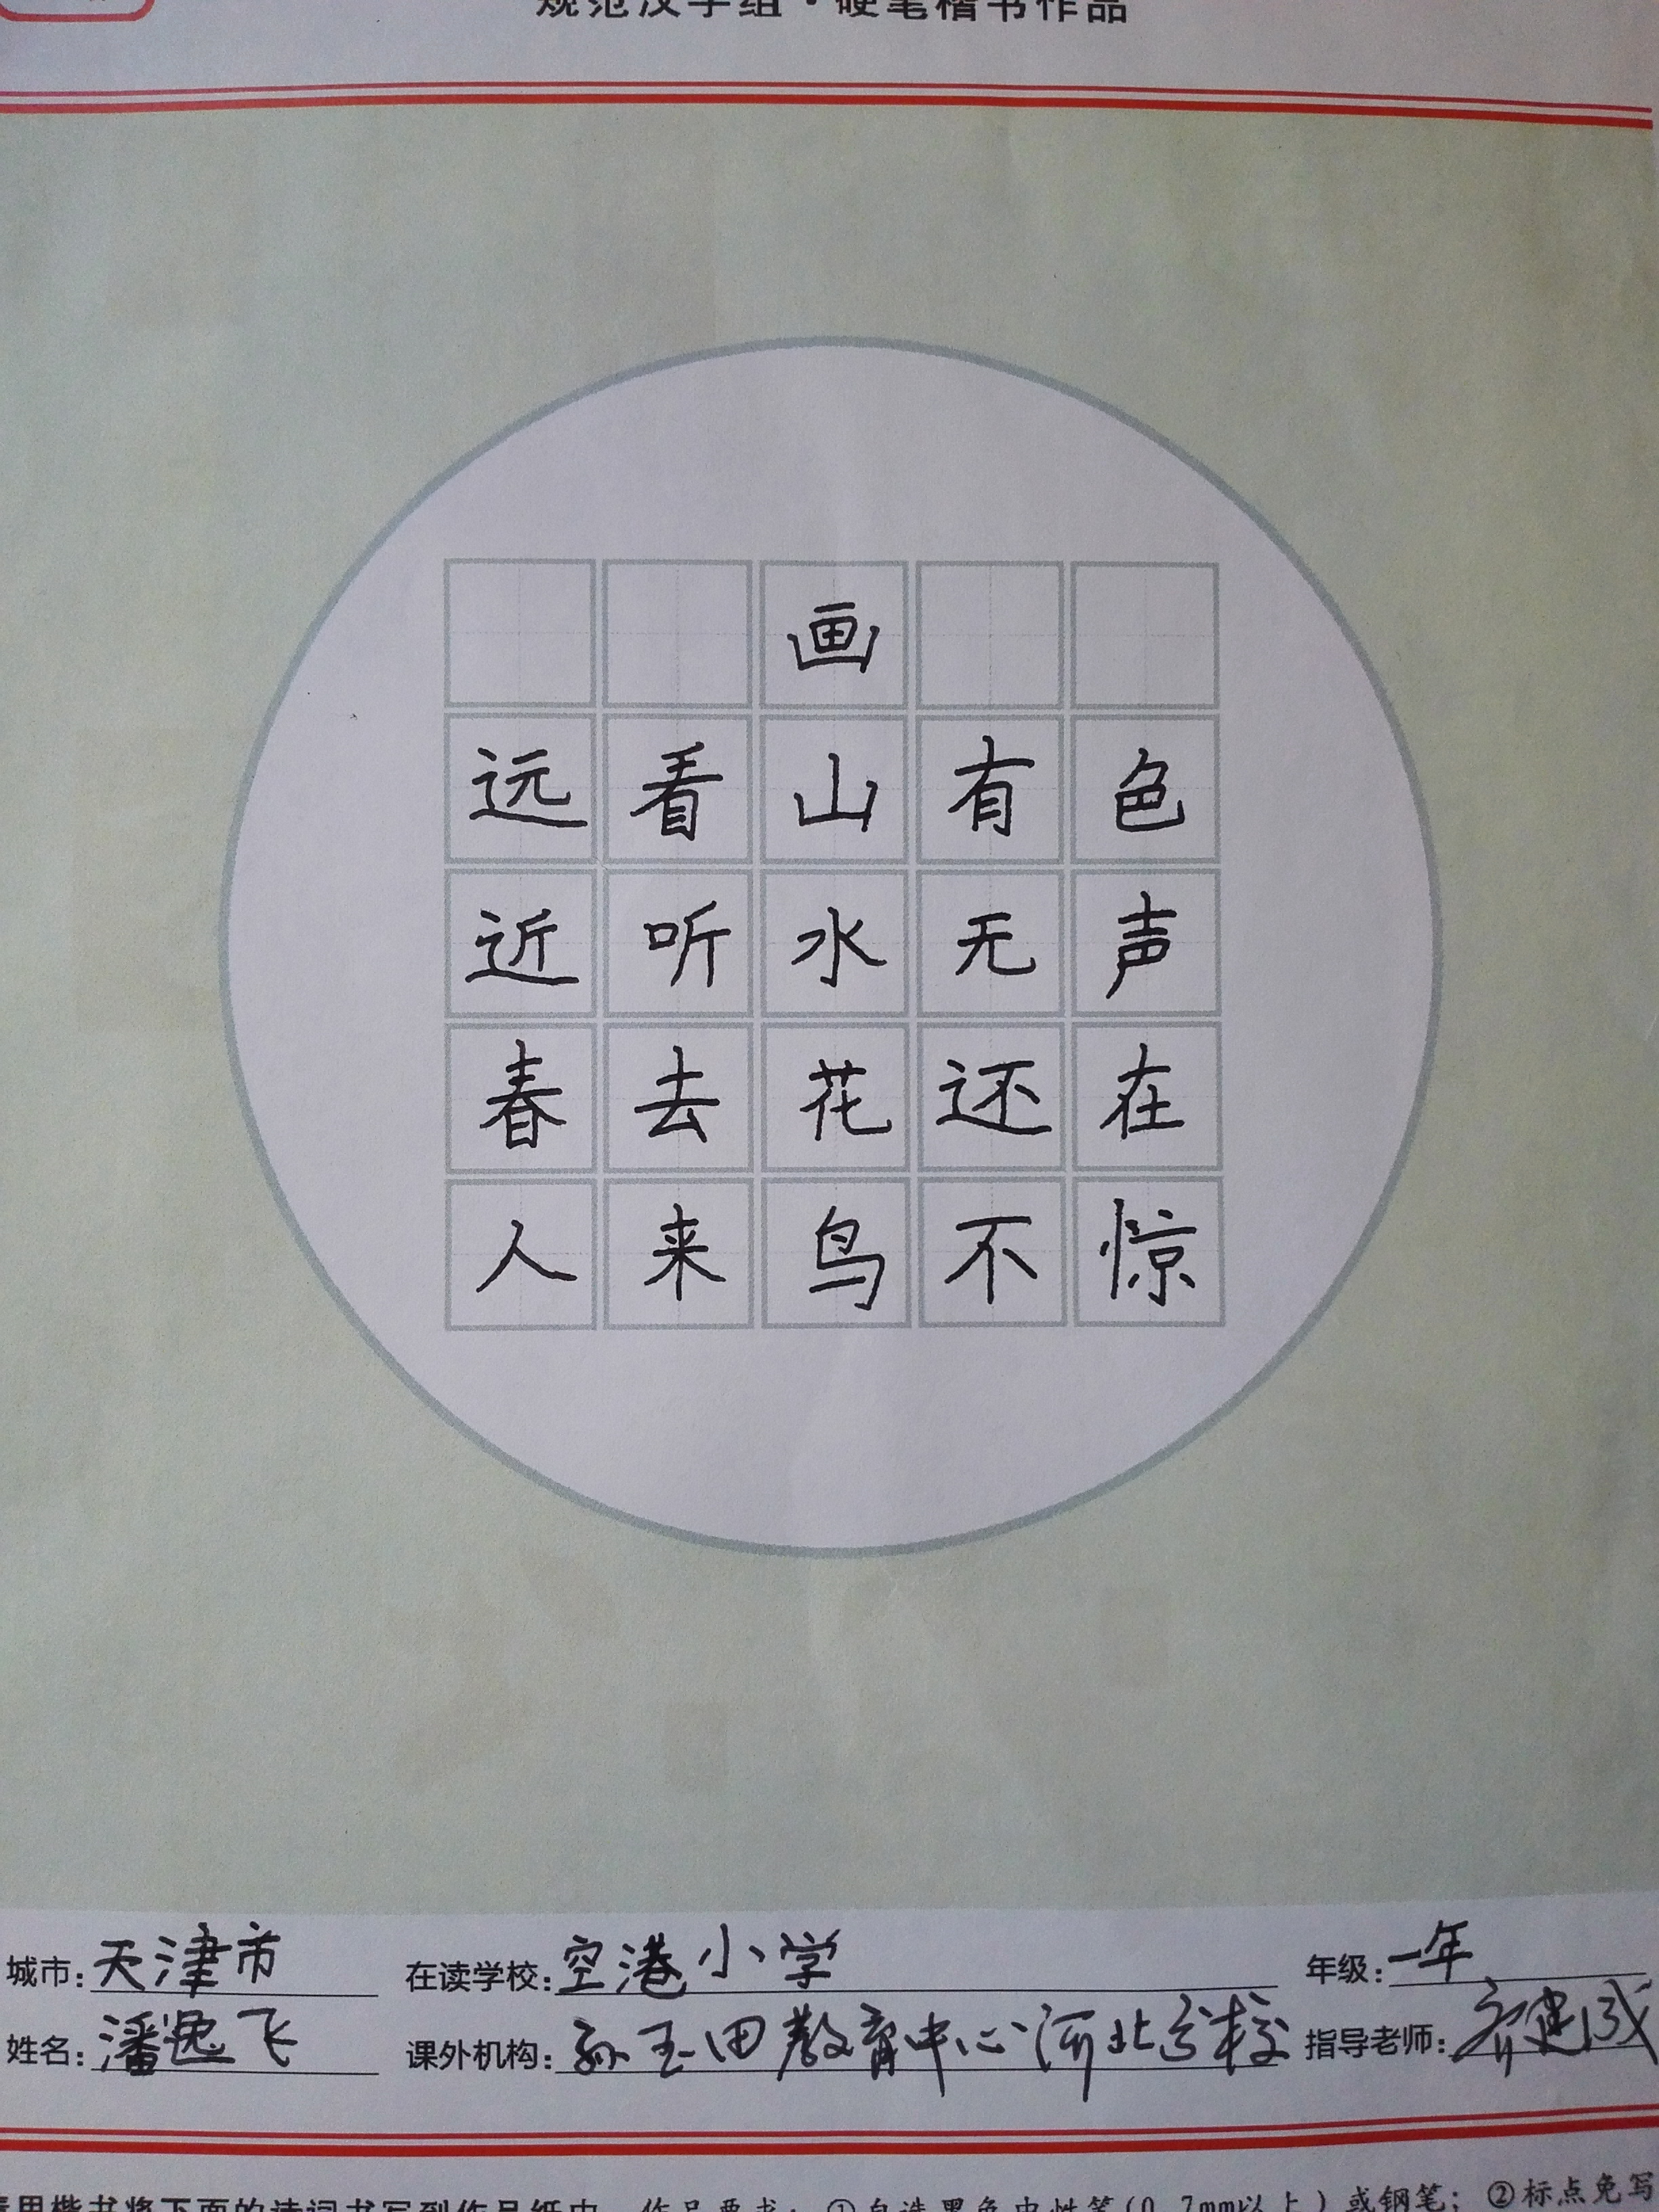 规范汉字组·硬笔楷书作品
画
远看山有色
近听水无声
春去花还在
人来鸟不惊
城市：天津市 在读学校：空港小学 年级：一年
姓名：潘逸飞 课外机构：孙玉田教育中心河北分校 指导老师：齐建
用楷书将下面的诗词书写到作品纸中。作品要求：①自选黑色中性笔(0.7mm以上)或钢笔；②标点免写